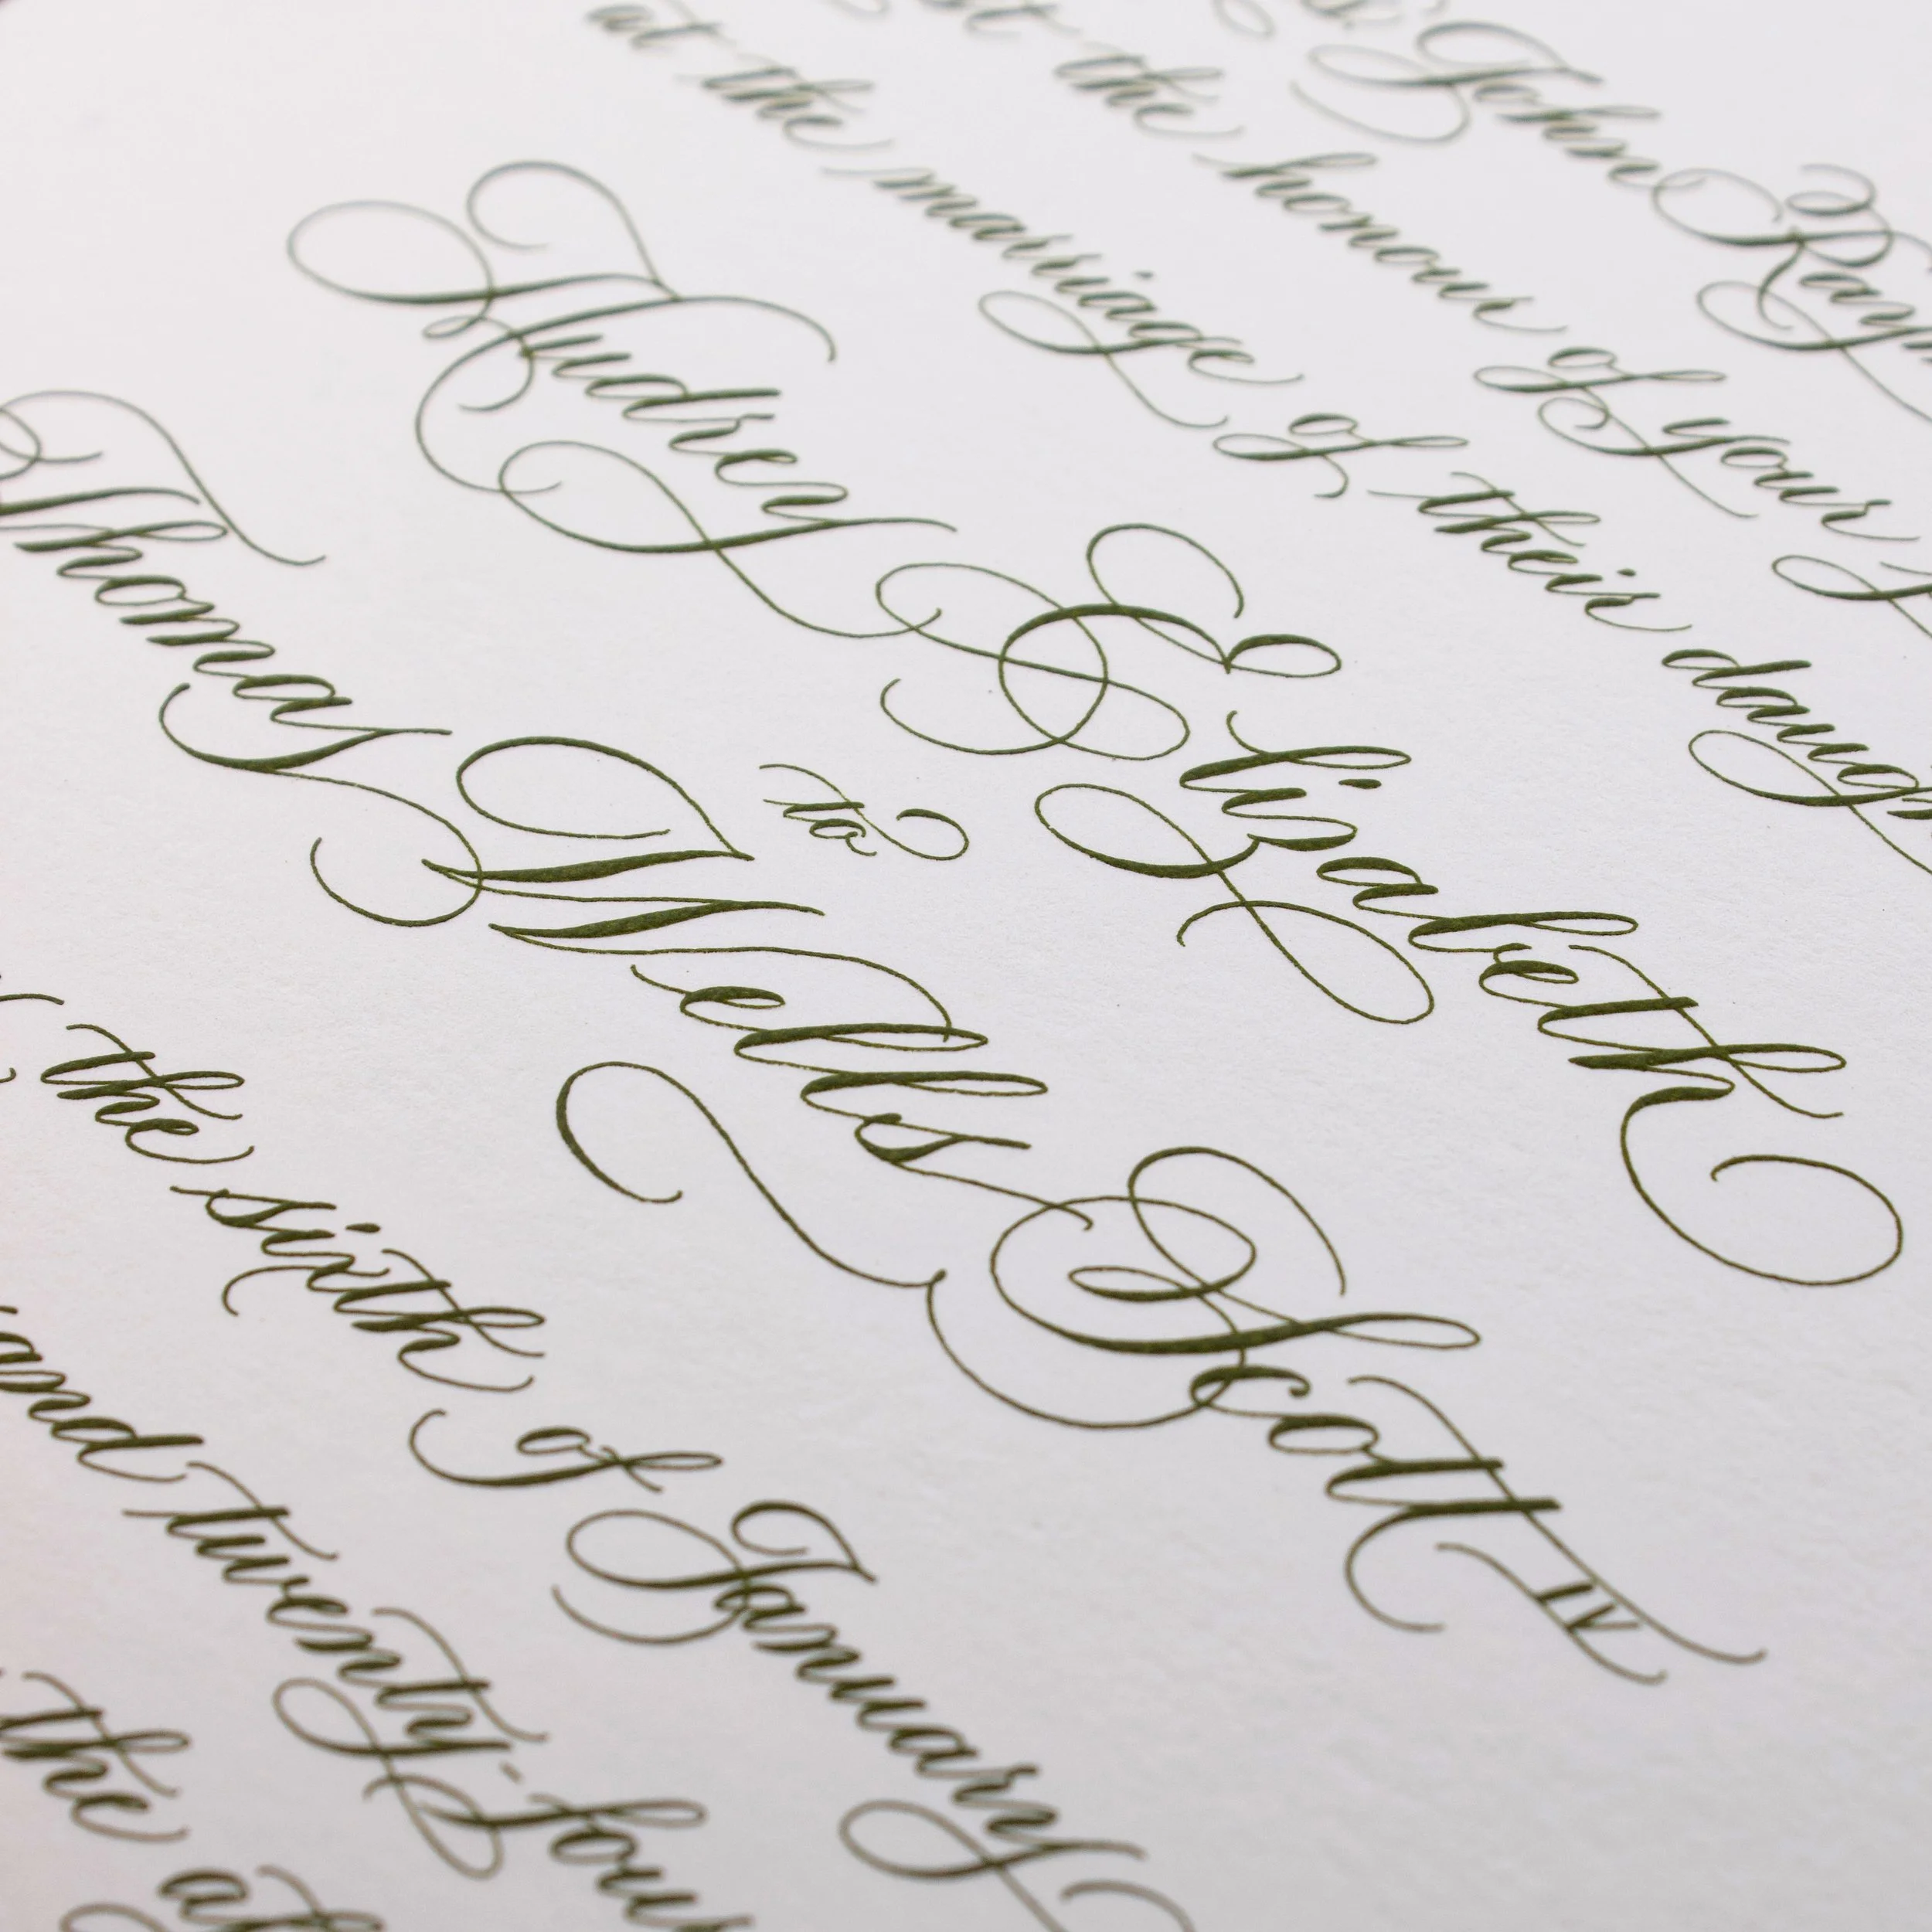 John
the honour of your
at the marriage of their
Audrey Elizabeth
to
Thomas Wells Scott IV
the sixth of January
twenty-four
the